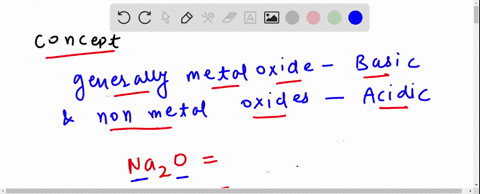 Concept
generally metal oxide - Basic
& non metal oxides - Acidic
Na₂O =